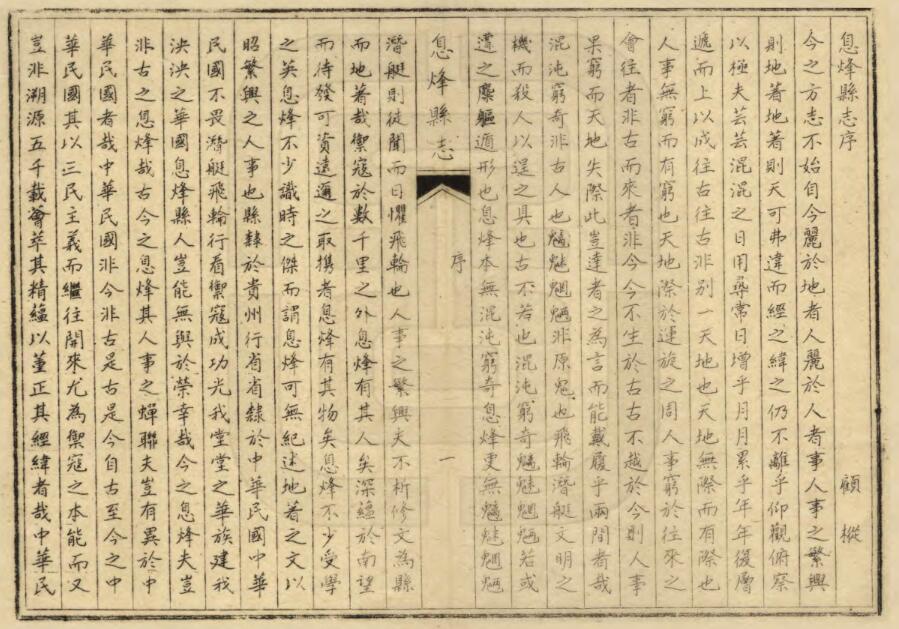 息烽縣志序
顧樅
今之方志不始自今麗於地者人麗於人者事人事之繁興
則地著地著則天可弗違而經之緯之仍不離乎仰觀俯察
以極夫芸芸混混之日用尋常日增乎月月累乎年年復層
遞而上以成往古往古非別一天地也天地無際而有際也
人事無窮而有窮也天地際於運旋之周人事窮於往來之
會往者非古而來者非今今不生於古古不越於今則人事
果窮而天地失際此豈達者之為言而能載履乎兩間者哉
混沌窮奇非古人也魑魅魍魎非原冤也飛輪潛艇文明之
機而殺人以逞之具也古不若也混沌窮奇魑魅魍魎若或
遭之麋軀遁形也息烽本無混沌窮奇息烽更無魑魅魍魎
息烽縣志
序
一
潛艇則徒聞而日懼飛輪也人事之繁興夫不析修文為縣
而地著哉禦寇於數千里之外息烽有其人矣深蘊於南望
而待發可資遠邇之取攜者息烽有其物矣息烽不少受學
之英息烽不少識時之傑而謂息烽可無紀述地著之文以
昭繁興之人事也縣隸於貴州行省省隸於中華民國中華
民國不畏潛艇飛輪行看禦寇成功光我堂堂之華族建我
泱泱之華國息烽縣人豈能無與於榮幸哉今之息烽夫豈
非古之息烽哉古今之息烽其人事之蟬聯夫豈有異於中
華民國者哉中華民國非今非古是古是今自古至今之中
華民國其以三民主義而繼往開來尤為禦寇之本能而又
豈非溯源五千載薈萃其精蘊以董正其經緯者哉中華民